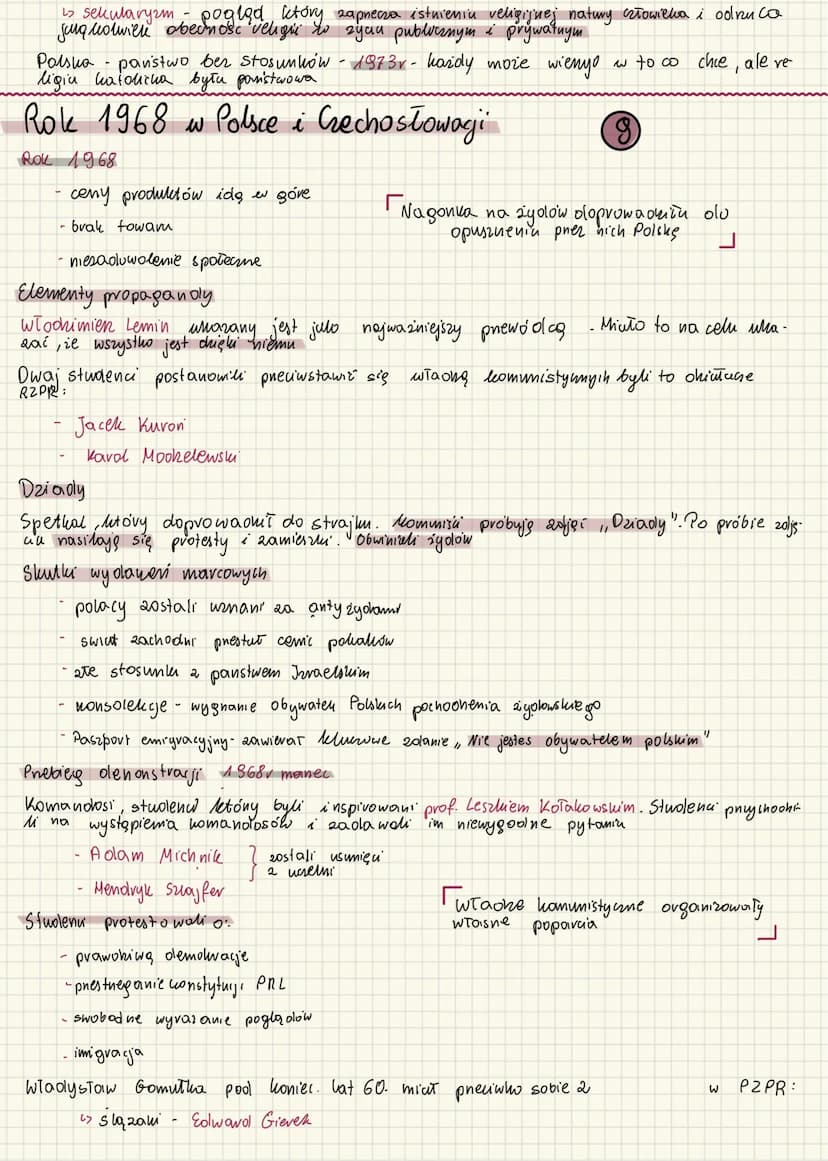 ↳ sekularyzm - pogląd który zaprzecza istnieniu religijnej natury człowieka i odrzuca
jakąkolwiek obecność religii w życiu publicznym i prywatnym
Polska - państwo bez stosunków - 1973r - każdy może wierzyć w to co chce, ale re
ligia katolicka była państwowa
Rok 1968 w Polsce i Czechosłowacji 9
Rok 1968
- ceny produktów idą w górę
- brak towaru
- niezadowolenie społeczne
Nagonka na żydów doprowadziła do
opuszczenia przez nich Polskę
Elementy propagandy
Włodzimierz Lemin ukazany jest jako najważniejszy przewódcą - Miało to na celu uka-
zać, że wszystko jest dzięki niemu
Dwaj studenci postanowili przeciwstawić się władzą komunistycznych byli to działacze
PZPR:
- Jacek Kuroń
- Karol Modzelewski
Dziady
Spetkal, który doprowadził do strajku. Komuniści próbują zdjąć „Dziady". Po próbie zdję-
cia nasilają się protesty i zamieszki. Obwiniali żydów
Skutki wydarzeń marcowych
- polacy zostali uznani za antyżydami
- świat zachodni przestał cenić polaków
- złe stosunki z państwem Izraelskim
- konsolekcje - wygnanie obywateli Polskich pochodzenia żydowskiego
- Paszport emigracyjny - zawierał kluczowe zdanie „Nie jesteś obywatelem polskim"
Przebieg demonstracji 1968r marzec
Komandosi, studenci którzy byli inspirowani prof. Leszkiem Kołakowskim. Studenci przychodzi
li na wystąpienia komandosów i zadawali im niewygodne pytania
- Adam Michnik } zostali usunięci
z uczelni
- Hendryk Szlajfer
Władze komunistyczne organizowały
własne poparcia
Studenci protestowali o:
- prawdziwą demokrację
- przestrzeganie konstytucji PRL
- swobodne wyrażanie poglądów
- imigracja
Władysław Gomułka pod koniec lat 60. miał przeciwko sobie 2 w PZPR:
↳ ślązaki - Edward Gierek